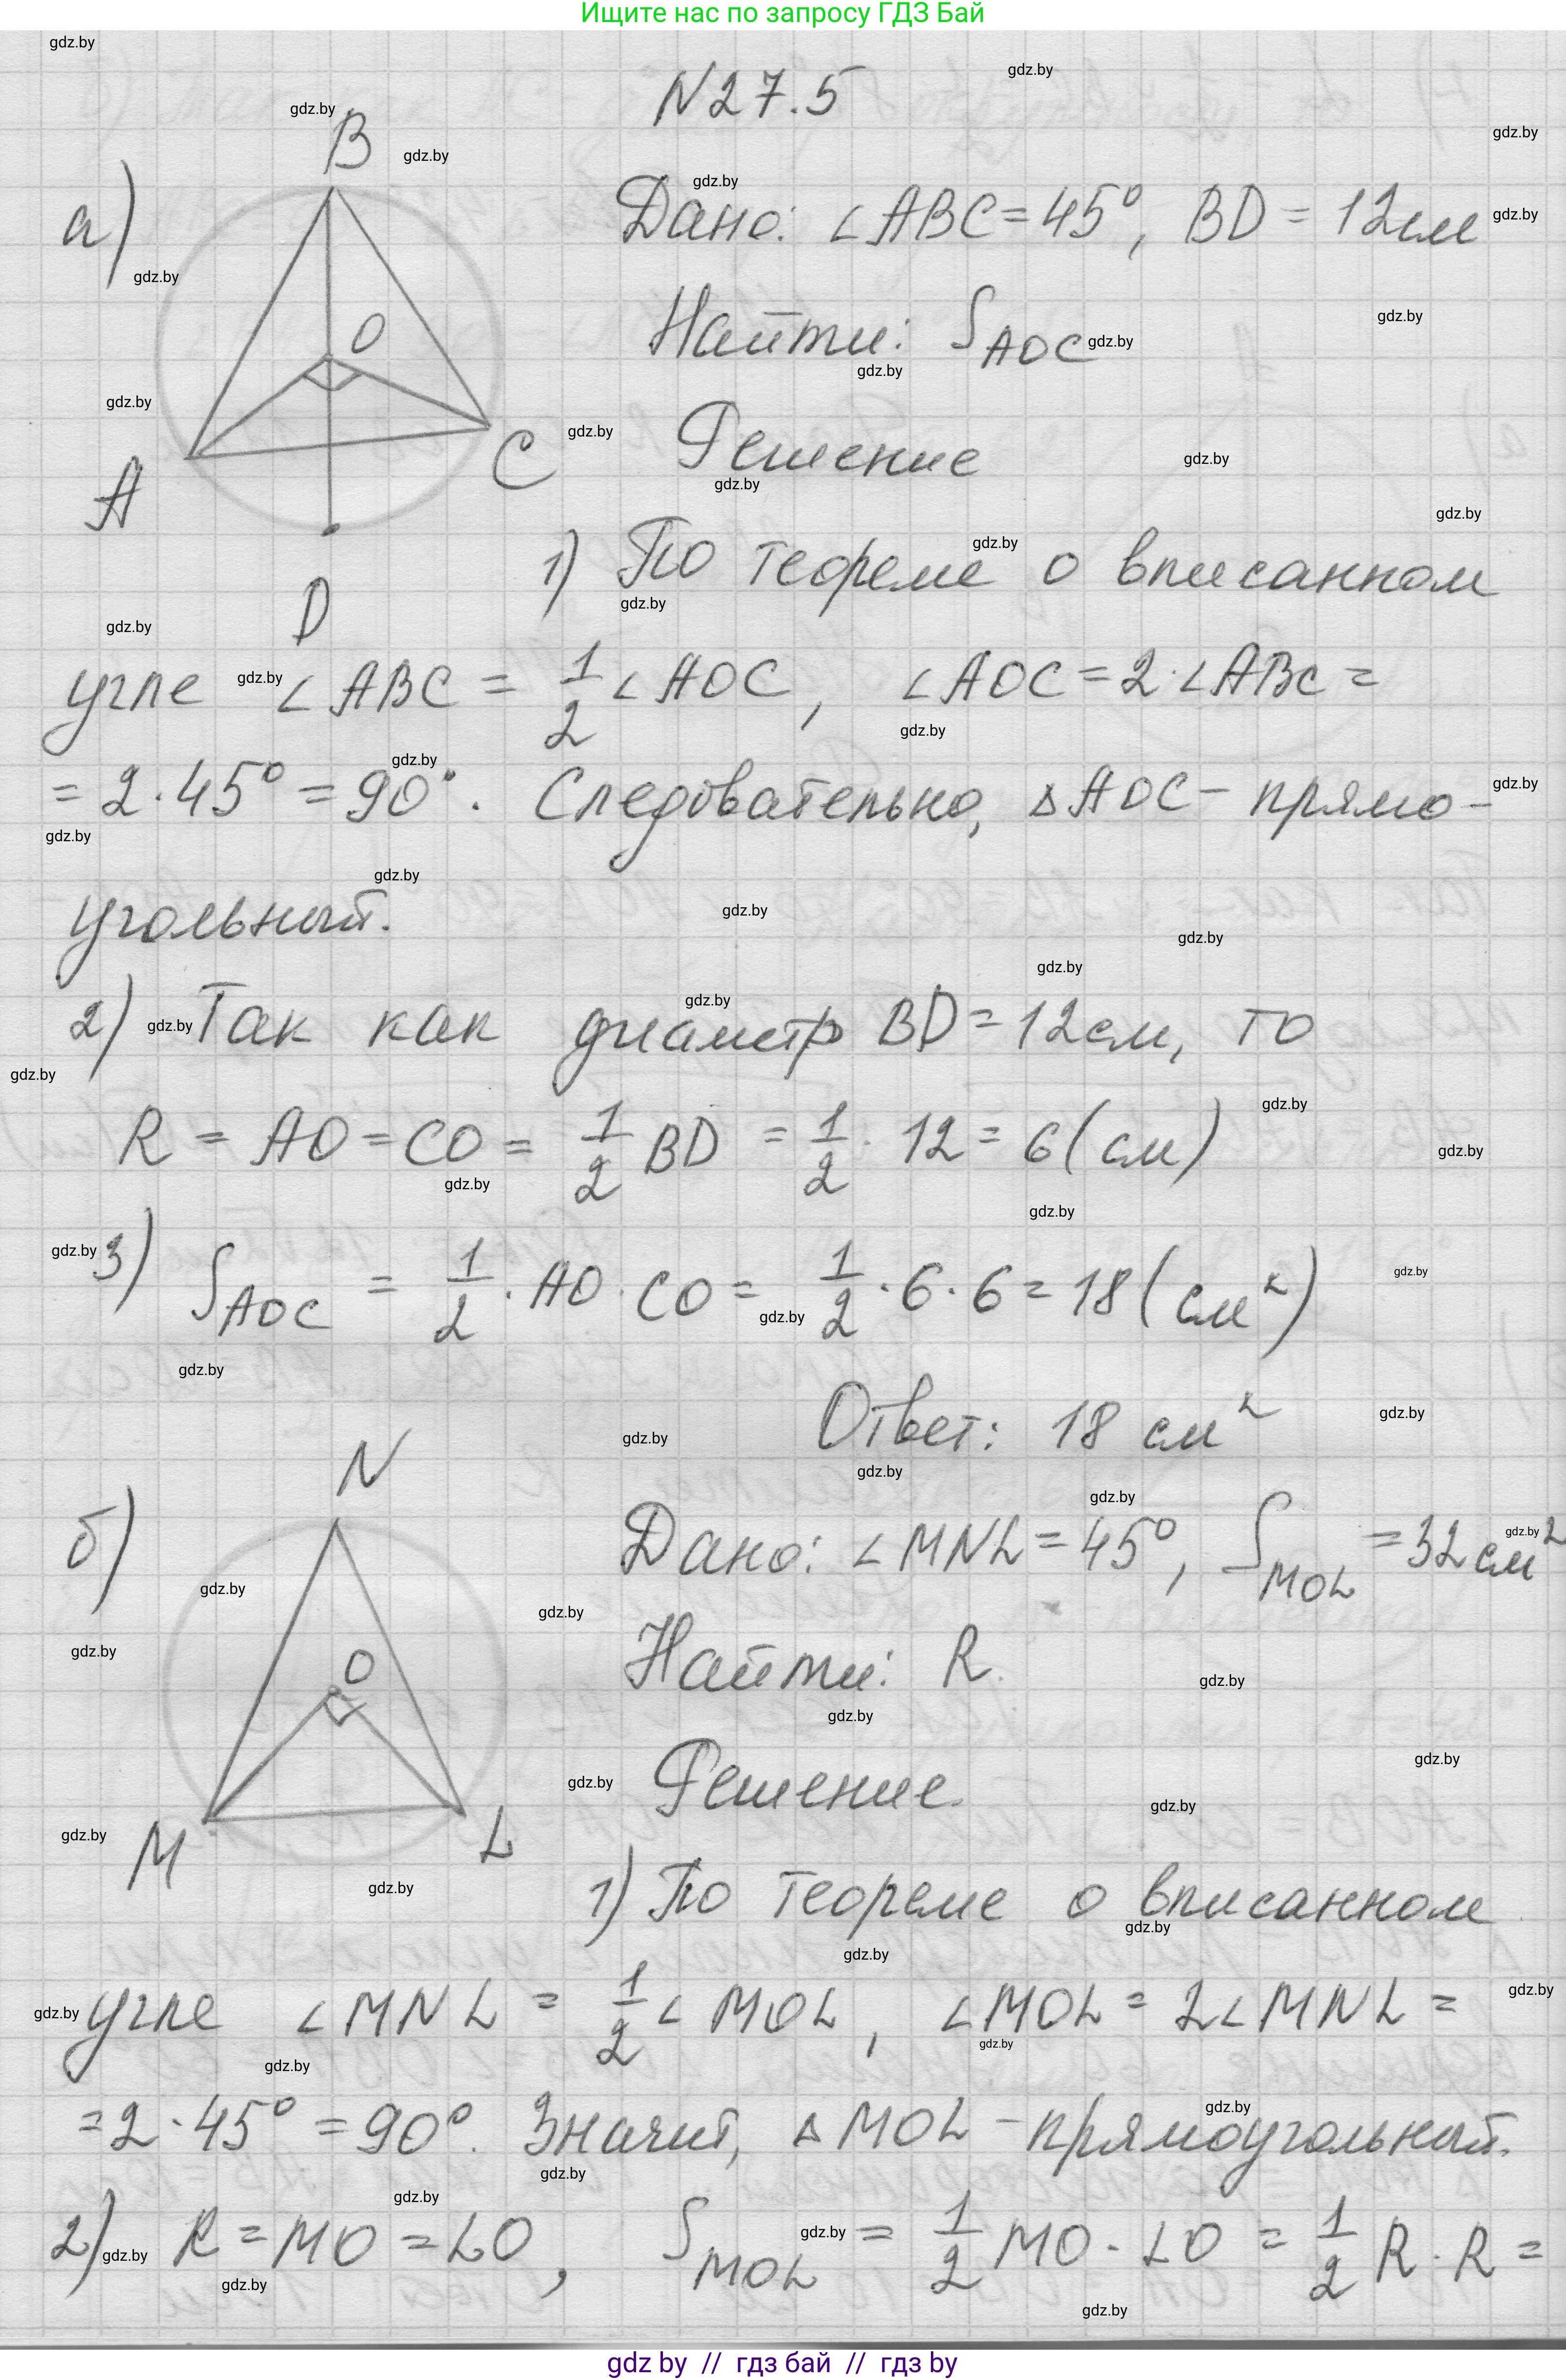 Ищите нас по запросу ГДЗ Бай
N27.5
а)
B
O
A
C
D
Дано: ∠ABC = 45°, BD = 12см
Найти: S_AOC
Решение
1) По теореме о вписанном
угле ∠ABC = 1/2 ∠AOC, ∠AOC = 2·∠ABC =
= 2·45° = 90°. Следовательно, △AOC – прямо-
угольный.
2) Так как диаметр BD = 12см, то
R = AO = CO = 1/2 BD = 1/2 · 12 = 6 (см)
3) S_AOC = 1/2 · AO · CO = 1/2 · 6 · 6 = 18 (см²)
Ответ: 18 см²
б)
N
O
M
L
Дано: ∠MNL = 45°, S_MOL = 32 см²
Найти: R.
Решение.
1) По теореме о вписанном
угле ∠MNL = 1/2 ∠MOL, ∠MOL = 2∠MNL =
= 2·45° = 90°. Значит, △MOL – прямоугольный.
2) R = MO = LO, S_MOL = 1/2 MO · LO = 1/2 R · R =
gdz by // гдз бай // гдз by